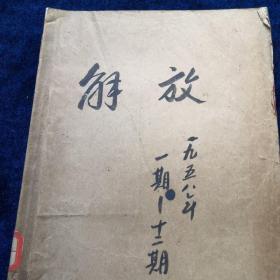 解放
一九五八年
一期-十二期